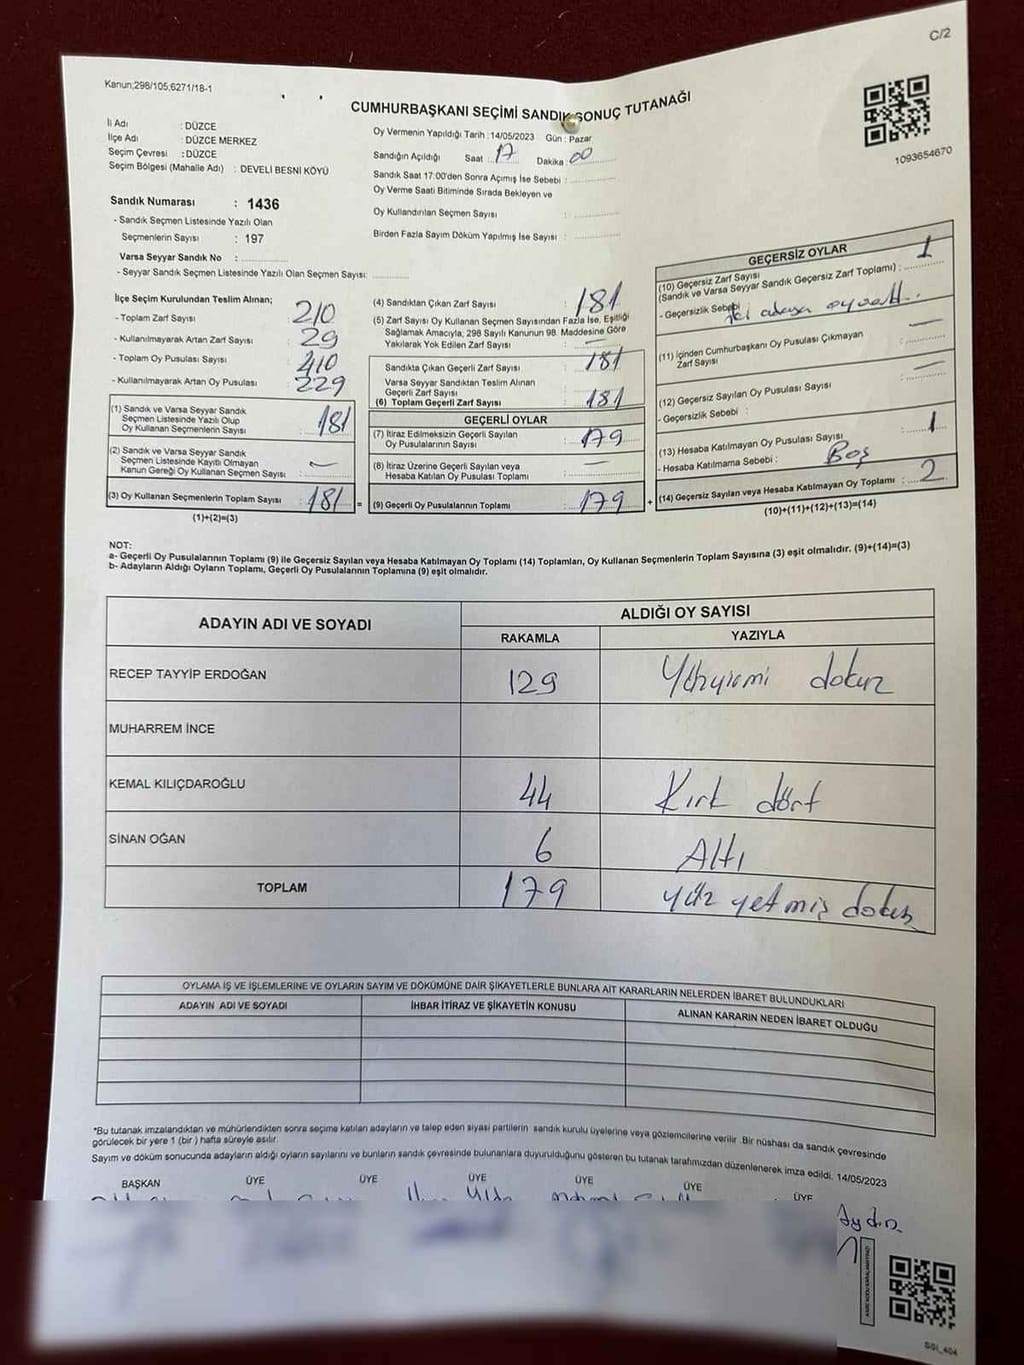 C/2
Kanun;298/105,6271/18-1
CUMHURBAŞKANI SEÇİMİ SANDIK SONUÇ TUTANAĞI
1093654670
İl Adı : DÜZCE
İlçe Adı : DÜZCE MERKEZ
Seçim Çevresi : DÜZCE
Seçim Bölgesi (Mahalle Adı) : DEVELİ BESNİ KÖYÜ
Sandık Numarası : 1436
- Sandık Seçmen Listesinde Yazılı Olan
Seçmenlerin Sayısı : 197
Varsa Seyyar Sandık No :
- Seyyar Sandık Seçmen Listesinde Yazılı Olan Seçmen Sayısı:
Oy Vermenin Yapıldığı Tarih :14/05/2023 Gün : Pazar
Sandığın Açıldığı Saat : 17 Dakika : 00
Sandık Saat 17:00'den Sonra Açımış İse Sebebi :
Oy Verme Saati Bitiminde Sırada Bekleyen ve
Oy Kullandırılan Seçmen Sayısı :
Birden Fazla Sayım Döküm Yapılmış İse Sayısı :
İlçe Seçim Kurulundan Teslim Alınan;
- Toplam Zarf Sayısı : 210
- Kullanılmayarak Artan Zarf Sayısı : 29
- Toplam Oy Pusulası Sayısı : 410
- Kullanılmayarak Artan Oy Pusulası : 229
(1) Sandık ve Varsa Seyyar Sandık
Seçmen Listesinde Yazılı Olup
Oy Kullanan Seçmenlerin Sayısı : 181
(2) Sandık ve Varsa Seyyar Sandık
Seçmen Listesinde Kayıtlı Olmayan
Kanun Gereği Oy Kullanan Seçmen Sayısı : —
(3) Oy Kullanan Seçmenlerin Toplam Sayısı : 181 =
(1)+(2)=(3)
(4) Sandıktan Çıkan Zarf Sayısı : 181
(5) Zarf Sayısı Oy Kullanan Seçmen Sayısından Fazla İse, Eşitliği
Sağlamak Amacıyla, 298 Sayılı Kanunun 98. Maddesine Göre
Yakılarak Yok Edilen Zarf Sayısı : —
Sandıkta Çıkan Geçerli Zarf Sayısı : 181
Varsa Seyyar Sandıktan Teslim Alınan
Geçerli Zarf Sayısı :
(6) Toplam Geçerli Zarf Sayısı : 181
GEÇERLİ OYLAR
(7) İtiraz Edilmeksizin Geçerli Sayılan
Oy Pusulalarının Sayısı : 179
(8) İtiraz Üzerine Geçerli Sayılan veya
Hesaba Katılan Oy Pusulası Toplamı : —
(9) Geçerli Oy Pusulalarının Toplamı : 179 +
GEÇERSİZ OYLAR
(10) Geçersiz Zarf Sayısı
(Sandık ve Varsa Seyyar Sandık Geçersiz Zarf Toplamı) : 1
- Geçersizlik Sebebi : iki adaya oy
(11) İçinden Cumhurbaşkanı Oy Pusulası Çıkmayan
Zarf Sayısı : —
(12) Geçersiz Sayılan Oy Pusulası Sayısı : —
- Geçersizlik Sebebi :
(13) Hesaba Katılmayan Oy Pusulası Sayısı : 1
- Hesaba Katılmama Sebebi : Boş
(14) Geçersiz Sayılan veya Hesaba Katılmayan Oy Toplamı : 2
(10)+(11)+(12)+(13)=(14)
NOT:
a- Geçerli Oy Pusulalarının Toplamı (9) ile Geçersiz Sayılan veya Hesaba Katılmayan Oy Toplamı (14) Toplamları, Oy Kullanan Seçmenlerin Toplam Sayısına (3) eşit olmalıdır. (9)+(14)=(3)
b- Adayların Aldığı Oyların Toplamı, Geçerli Oy Pusulalarının Toplamına (9) eşit olmalıdır.
ADAYIN ADI VE SOYADI ALDIĞI OY SAYISI
RAKAMLA YAZIYLA
RECEP TAYYİP ERDOĞAN 129 Yüzyirmi dokuz
MUHARREM İNCE
KEMAL KILIÇDAROĞLU 44 Kırk dört
SİNAN OĞAN 6 Altı
TOPLAM 179 yüz yetmiş dokuz
OYLAMA İŞ VE İŞLEMLERİNE VE OYLARIN SAYIM VE DÖKÜMÜNE DAİR ŞİKAYETLERLE BUNLARA AİT KARARLARIN NELERDEN İBARET BULUNDUKLARI
ADAYIN ADI VE SOYADI İHBAR İTİRAZ VE ŞİKAYETİN KONUSU ALINAN KARARIN NEDEN İBARET OLDUĞU
*Bu tutanak imzalandıktan ve mühürlendikten sonra seçime katılan adayların ve talep eden siyasi partilerin sandık kurulu üyelerine veya gözlemcilerine verilir .Bir nüshası da sandık çevresinde
görülecek bir yere 1 (bir ) hafta süreyle asılır.
Sayım ve döküm sonucunda adayların aldığı oyların sayılarını ve bunların sandık çevresinde bulunanlara duyurulduğunu gösteren bu tutanak tarafımızdan düzenlenerek imza edildi. 14/05/2023
BAŞKAN ÜYE ÜYE ÜYE ÜYE ÜYE ÜYE
Aydın
SSİ_404